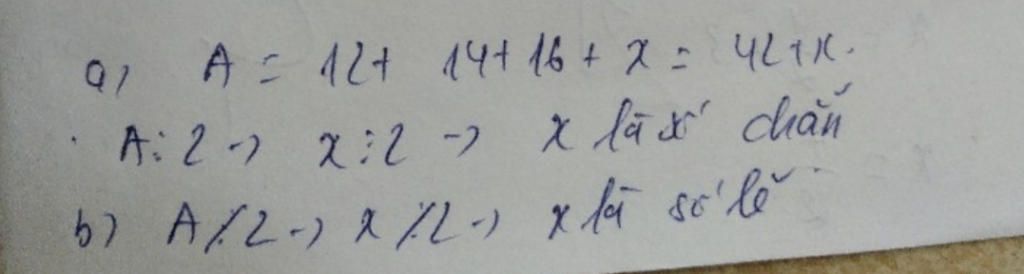 a) A = 12 + 14 + 16 + x = 42 + x.
. A ⋮ 2 -> x ⋮ 2 -> x là số chẵn
b) A ⋮̸ 2 -> x ⋮̸ 2 -> x là số lẻ